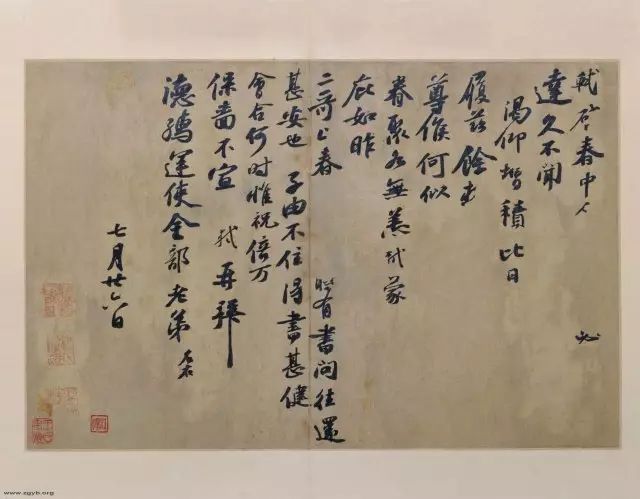 軾啓春中人 必
達久不聞
渴仰增積比日
履茲餘
尊候何似
眷聚各無恙軾蒙
庇如昨
二哥上春 時有書問往還
甚安也子由不住得書甚健
會合何時惟祝倍万
保嗇不宣 軾再拜
德孺運使金部老弟 左右
七月廿六日
www.zgyb.org